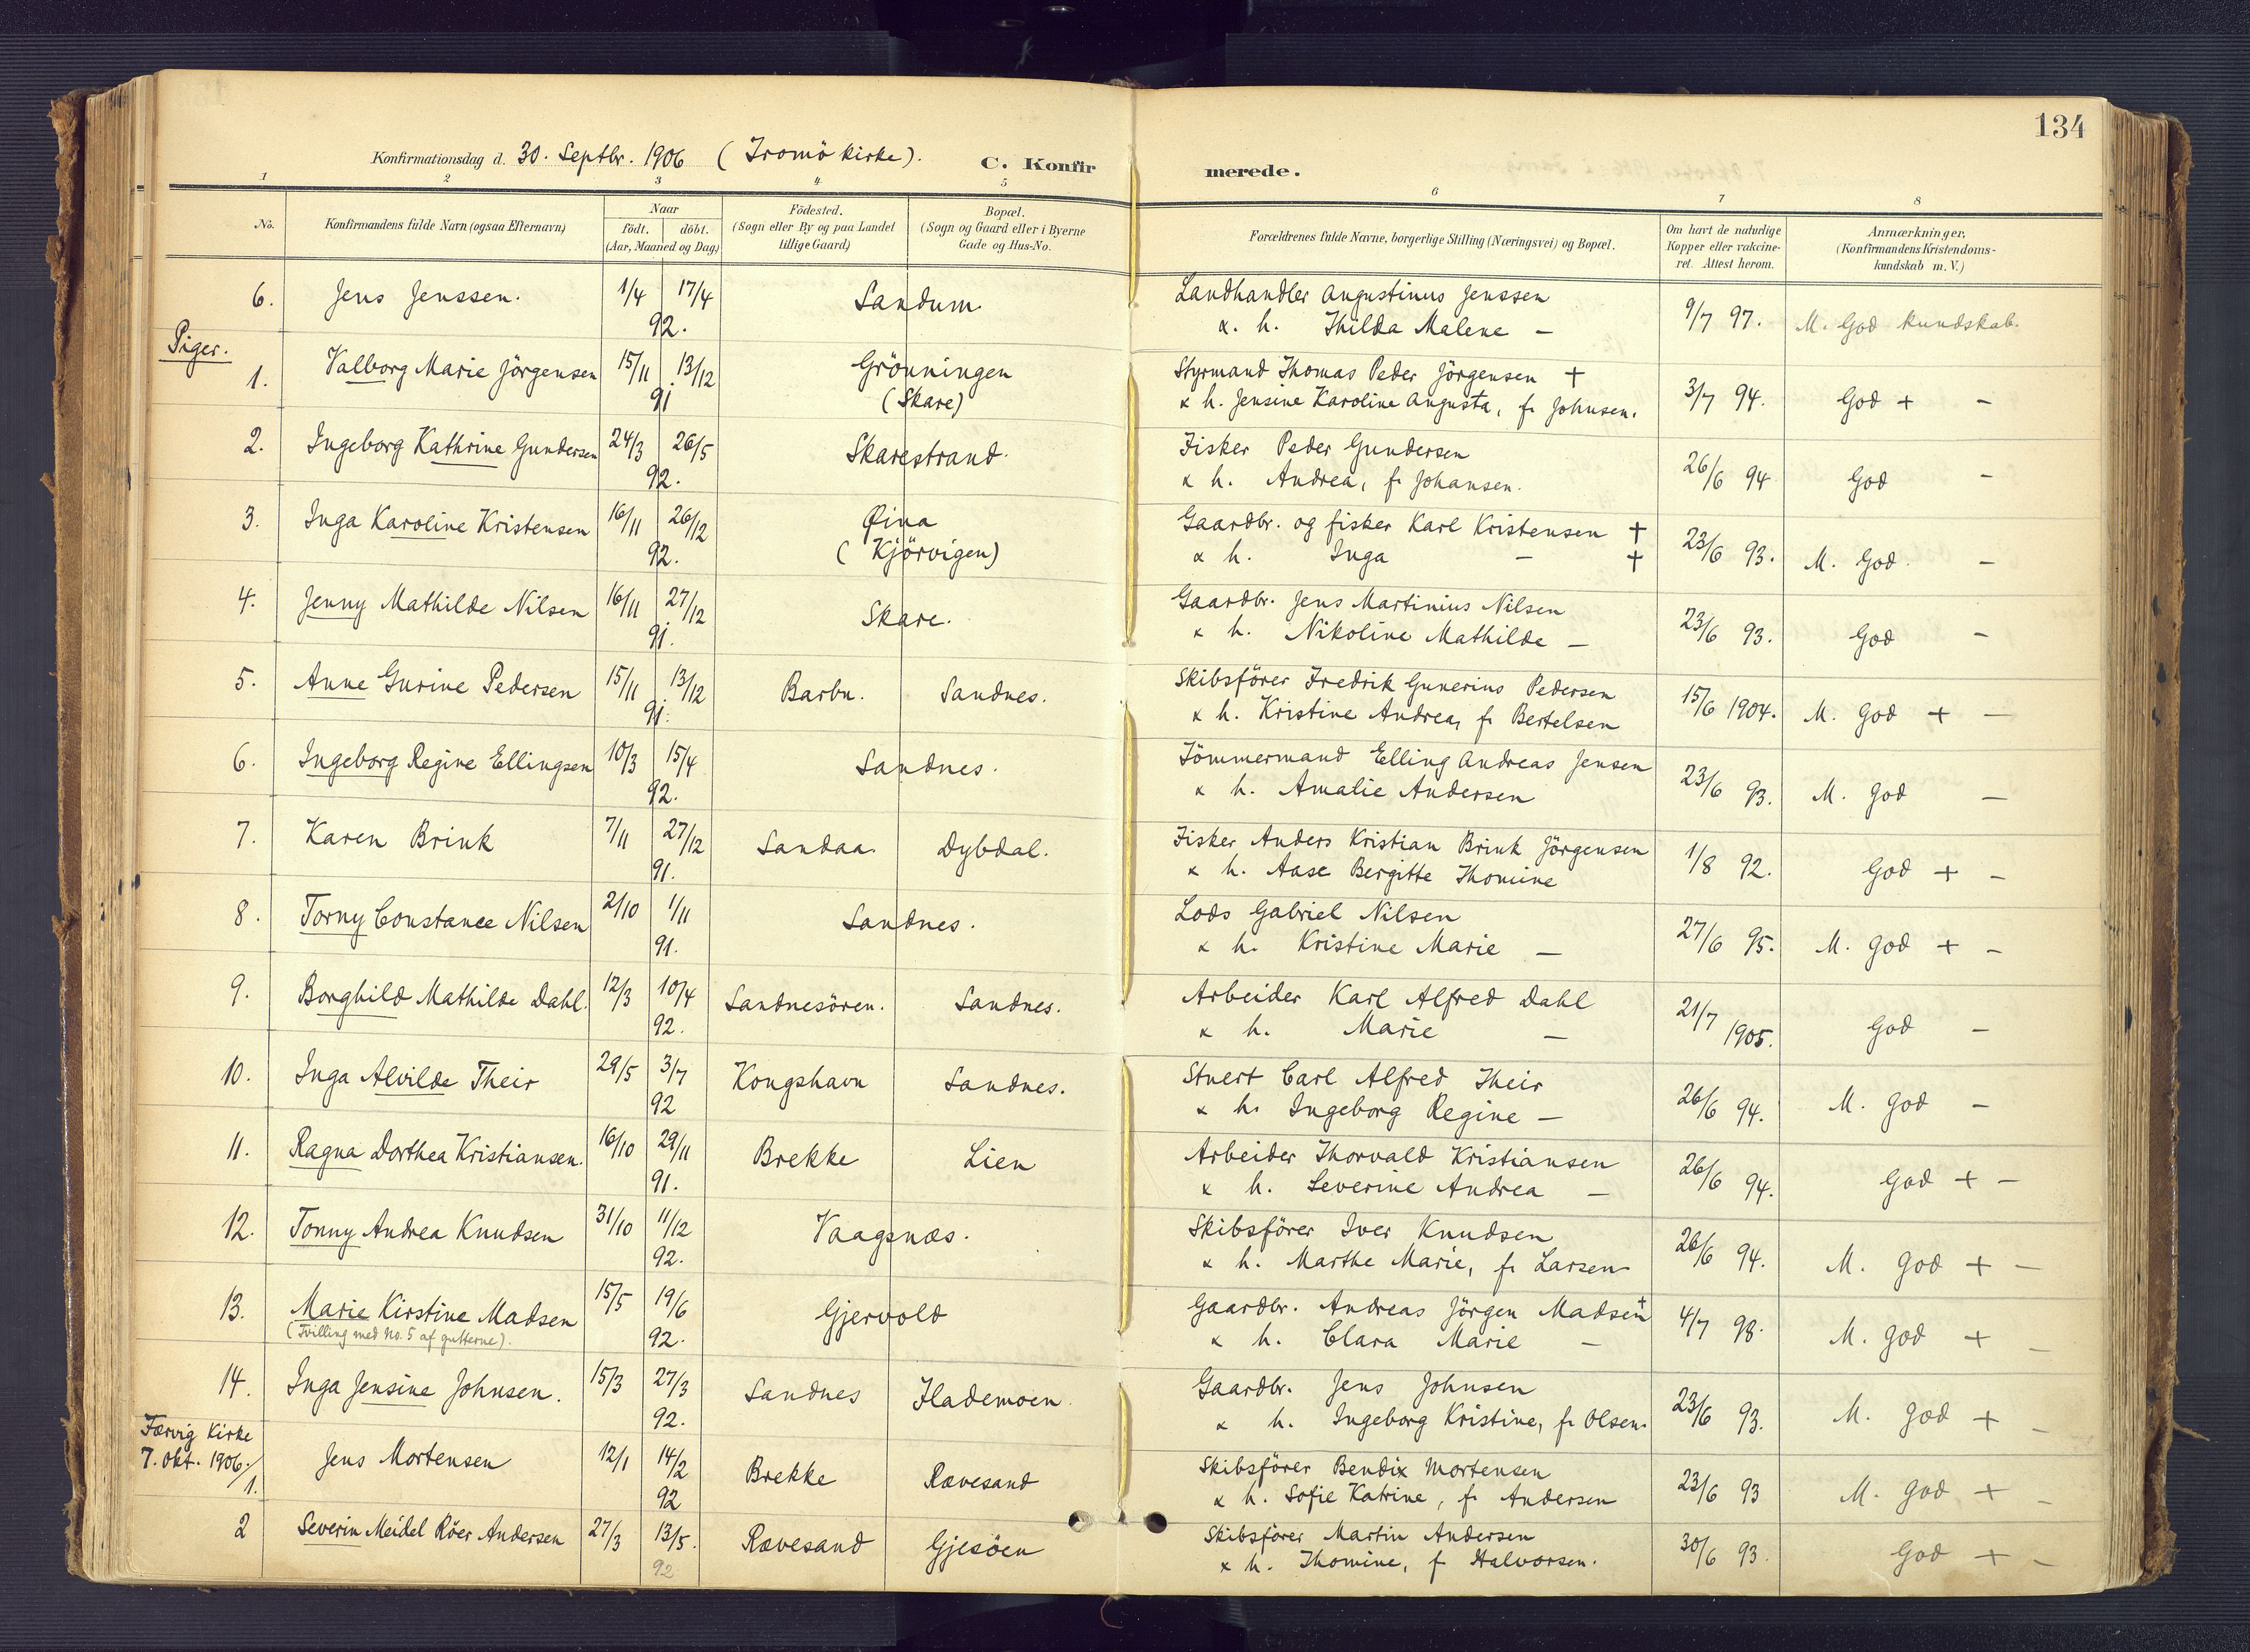 134
Konfirmationsdag d. 30. Septbr. 1906 (Tromö kirke).
C. Konfirmerede.
1 2 3 4 5 6 7 8
No. Konfirmandens fulde Navn (ogsaa Efternavn) Naar födt. döbt. (Aar, Maaned og Dag) Födested. (Sogn eller By og paa Landet tillige Gaard) Bopæl. (Sogn og Gaard eller i Byerne Gade og Hus-No. Forældrenes fulde Navne, borgerlige Stilling (Næringsvei) og Bopæl. Om havt de naturlige Kopper eller vakcineret. Attest herom. Anmærkninger, (Konfirmandens Kristendomskundskab m. V.)
6. Jens Jenssen. 1/4 17/4 Sandum. Landhandler Augustinus Jenssen 9/7 97. M. God kundskab.
92. & h. Thilda Malene —
Piger.
1. Valborg Marie Jörgensen 15/11 13/12 Grönningen Styrmand Thomas Peder Jörgensen † 3/7 94. God + —
91 (Skare) & h. Jensine Karoline Augusta, f. Johnsen.
2. Ingeborg Kathrine Gundersen 24/3 26/5 Skarestrand. Fisker Peder Gundersen 26/6 94 God —
92. & h. Andrea, f. Johansen.
3. Inga Karoline Kristensen 16/11 26/12 Øina Gaardbr. og fisker Karl Kristensen † 23/6 93. M. God. —
92. (Kjörvigen) & h. Inga — †
4. Jenny Mathilde Nilsen 16/11 27/12 Skare. Gaardbr. Jens Martinius Nilsen 23/6 93. God —
91. & h. Nikoline Mathilde —
5. Anne Gurine Pedersen 15/11 13/12 Barbu. Sandnes. Skibsförer Fredrik Gunerius Pedersen 15/6 1904. M. God + —
91. & h. Kristine Andrea, f. Bertelsen
6. Ingeborg Regine Ellingsen 10/3 15/4 Sandnes. Tömmermand Elling Andreas Jensen 23/6 93. M. God —
92. & h. Amalie Andersen
7. Karen Brink 7/11 27/12 Sandaa. Dybdal. Fisker Anders Kristian Brink Jörgensen 1/8 92. God + —
91. & h. Aase Bergitte Thomine
8. Torny Constance Nilsen 2/10 1/11 Sandnes. Lods Gabriel Nilsen 27/6 95. M. God + —
91. & h. Kristine Marie —
9. Borghild Mathilde Dahl. 12/3 10/4 Sandnesören. Sandnes. Arbeider Karl Alfred Dahl 21/7 1905. God —
92. & h. Marie —
10. Inga Alvilde Their 29/5 3/7 Kongshavn Sandnes. Stuert Carl Alfred Their 26/6 94. M. God —
92 & h. Ingeborg Regine —
11. Ragna Dorthea Kristiansen. 16/10 29/11 Brekke Lien Arbeider Thorvald Kristiansen 26/6 94. God + —
91. & h. Severine Andrea —
12. Tonny Andrea Knudsen 31/10 11/12 Vaagsnæs. Skibsförer Iver Knudsen 26/6 94. M. God + —
92. & h. Marthe Marie, f. Larsen
13. Marie Kirstine Madsen 15/5 19/6 Gjervold Gaardbr. Andreas Jörgen Madsen † 4/7 98. M. God + —
(Tvilling med No. 5 af gutterne). 92. & h. Clara Marie —
14. Inga Jensine Johnsen. 15/3 27/3 Sandnes Flademoen. Gaardbr. Jens Johnsen 23/6 93. M. God + —
92. & h. Ingeborg Kristine, f. Olsen.
Færvig Kirke
7. Okt. 1906.
1. Jens Mortensen 12/1 14/2 Brekke Rævesand Skibsförer Bendix Mortensen 23/6 93 M. God + —
92 & h. Sofie Katrine, f. Andersen
2 Severin Meidel Röer Andersen 27/3 13/5. Rævesand Gjesöen Skibsförer Martin Andersen 30/6 93. God + —
92 & h. Thomine, f. Halvorsen.